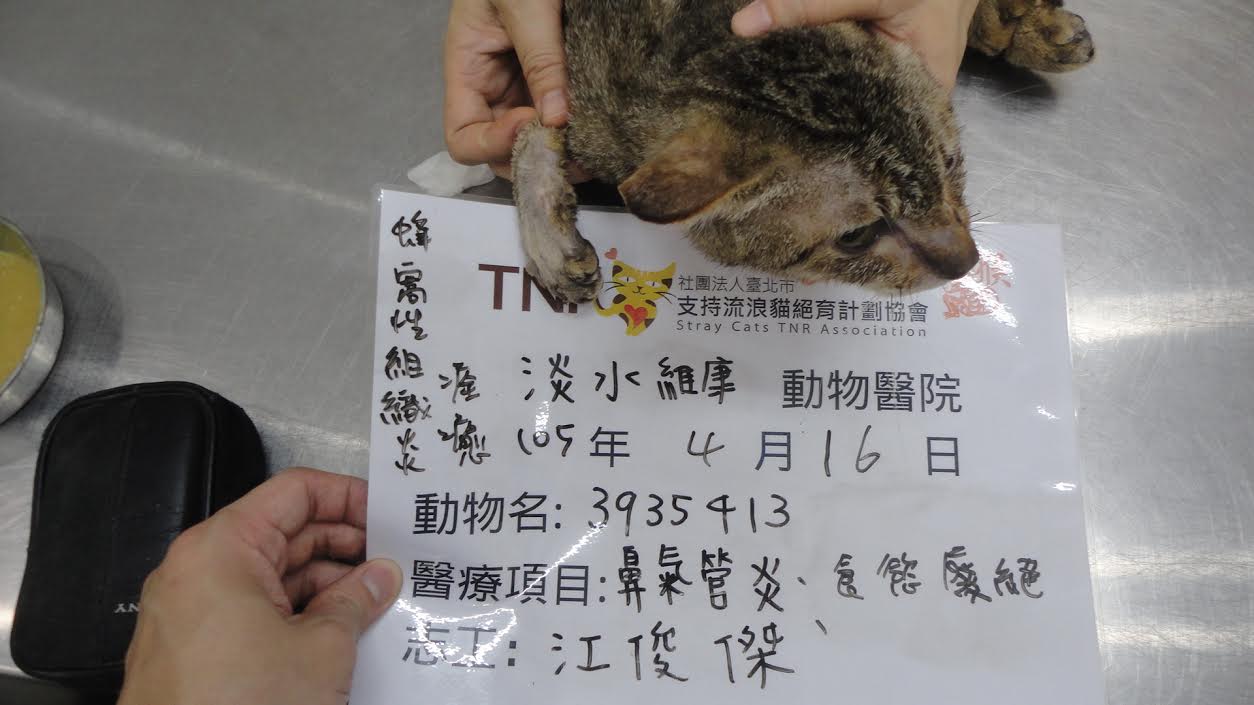 TN
社團法人臺北市
支持流浪貓絕育計劃協會
Stray Cats TNR Association
淡水維康 動物醫院
105年 4月16日
動物名: 3935413
醫療項目: 鼻氣管炎、食慾廢絕、
志工: 江俊傑
蜂窩性組織炎
痊癒
NY